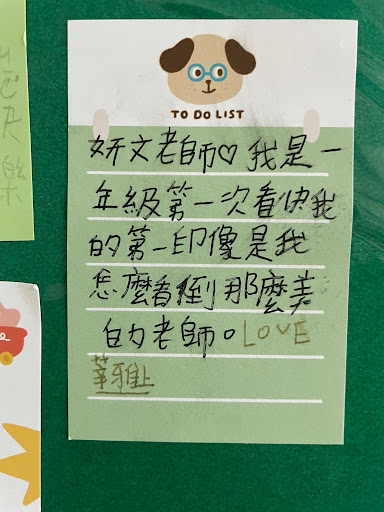 TO DO LIST
妍文老師♡我是一
年級第一次看快我
的第一印像是我
怎麼看倒那麼美
的老師。LOVE
莘雅上
樂